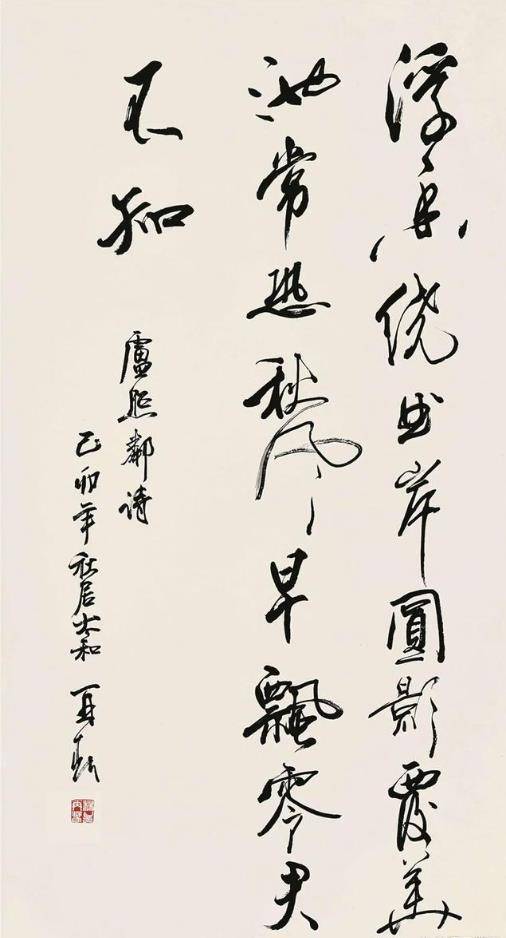 浮香绕曲岸圓影覆華
池常恐秋风早飄零君
不知
盧照鄰诗
己卯年秋居太和